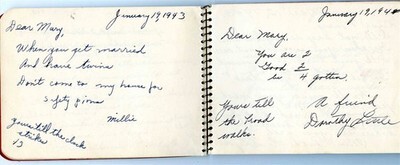 January 19, 1943
Dear Mary,
When you get married
And have twins
Don't come to my house for
Safty pins
Millie
Yours till the clock
strikes
13
January 19, 194
Dear Mary,
You are 2
Good 2
be 4 gotten.
Yours till
the road
walks.
A friend
Dorothy